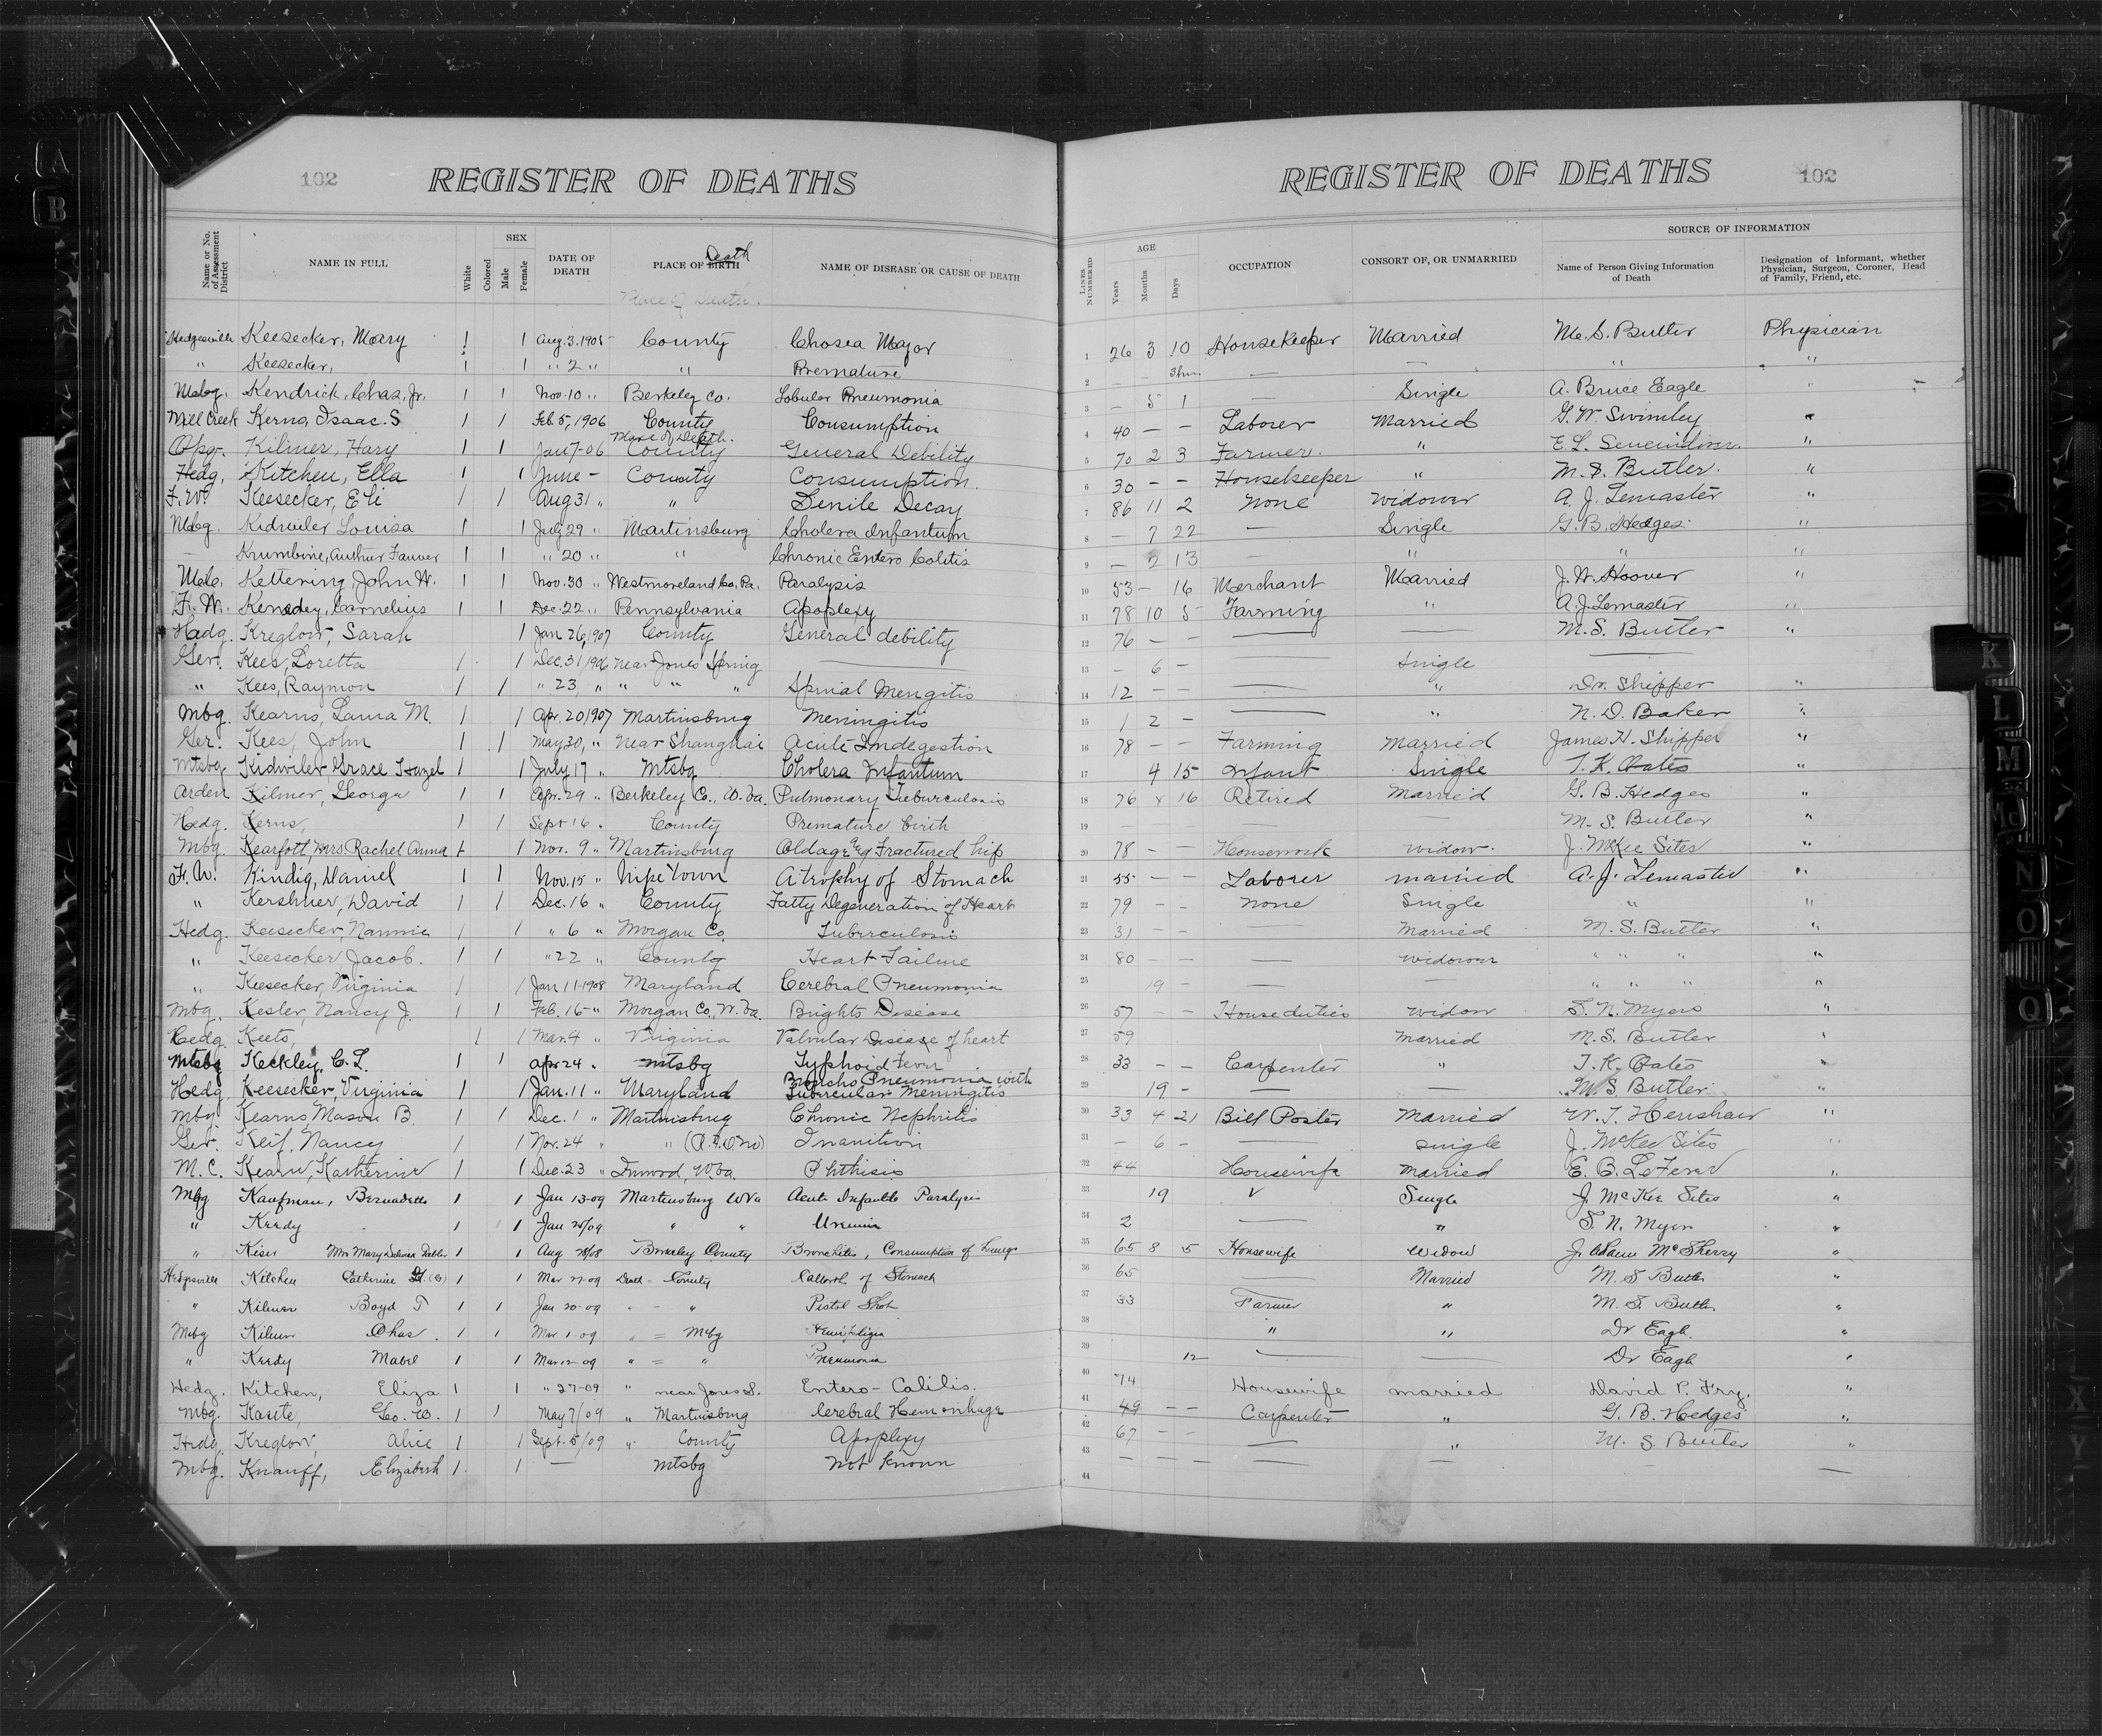 102 REGISTER OF DEATHS
REGISTER OF DEATHS 102
Name or No. of Assessment District NAME IN FULL White Colored SEX Male Female DATE OF DEATH PLACE OF BIRTH Death NAME OF DISEASE OR CAUSE OF DEATH
Place of Death.
LINES NUMBERED AGE Years Months Days OCCUPATION CONSORT OF, OR UNMARRIED SOURCE OF INFORMATION Name of Person Giving Information of Death Designation of Informant, whether Physician, Surgeon, Coroner, Head of Family, Friend, etc.
Hedgesville Keesecker, Mary 1 1 Aug. 3. 1905 County Chorea Major 1 26 3 10 Housekeeper Married M. S. Butler Physician
" Keesecker, 1 1 " 2 " " Premature 2 — — 3 hrs. — — " "
Mbg. Kendrick, Chas, Jr. 1 1 Nov. 10 " Berkeley Co. Lobular Pneumonia 3 — 5 1 — Single A. Bruce Eagle "
Mill Creek Kerns, Isaac. S 1 1 Feb. 5, 1906 County Consumption 4 40 — — Laborer Married G. W. Swimley "
Place of Death.
Opq. Kilmer, Hary 1 1 Jan 7-06 County General Debility 5 70 2 3 Farmer. " "
Hedg. Kitchen, Ella 1 1 June - County Consumption. 6 30 — — Housekeeper " M. S. Butler. "
F. W. Keesecker, Eli 1 1 Aug 31 " " Senile Decay 7 86 11 2 None Widower A. J. Lemaster "
Mbg. Kidwiler Louisa 1 1 July 29 " Martinsburg Cholera Infantum 8 — 7 22 — Single G. B. Hedges. "
— Krumbine, Arthur Fauver 1 1 " 20 " " Chronic Entero Colitis 9 — 2 13 — " " "
Kettering, John W. 1 1 Nov. 30 " Westmoreland Co. Pa. Paralysis 10 53 — 16 Merchant Married J. W. Hoover "
F. W. Kenedey, Cornelius 1 1 Dec. 22 " Pennsylvania Apoplexy 11 78 10 5 Farming " A. J. Lemaster "
Hedg. Kreglow, Sarah 1 Jan 26, 1907 County General debility 12 76 — — — — M. S. Butler "
Ger. Kees, Loretta 1 1 Dec. 31, 1906 near Jones Spring — 13 — 6 — — Single —
" Kees, Raymon 1 1 " 23, " " " " Spinal Mengitis 14 12 — — — " Dr. Shipper "
Mbg. Kearns, Lama M. 1 1 Apr. 20 1907 Martinsburg Meningitis 15 1 2 — — " N. D. Baker "
Ger. Kees, John 1 1 May 30, " near Shanghai Acute Indegestion 16 78 — — Farming Married James H. Shipper "
Mtsbg Kidwiler Grace Hazel 1 1 July 17 " Mtsbg Cholera Infantum 17 4 15 Infant Single T. K. Oates "
Arden Kilmer, George 1 1 Apr. 29 " Berkeley Co., W. Va. Pulmonary Tuberculosis 18 76 4 16 Retired Married G. B. Hedges "
Hedg. Kerns, 1 1 Sept 16 " County Premature birth 19 — — — — — M. S. Butler "
Mbg. Kearfott, Mrs. Rachel Anna 1 1 Nov. 9 " Martinsburg Old age & Fractured hip 20 78 — — Housework widow. J. McKee Sites "
F. W. Kindig, Daniel 1 1 Nov. 15 " Nipe Town Atrophy of Stomach 21 55 — — Laborer married A. J. Lemaster "
" Kershner, David 1 1 Dec. 16 " County Fatty Degeneration of Heart 22 79 — — None Single " "
Hedg. Keesecker, Nannie 1 1 " 6 " Morgan Co. Tuberculosis 23 31 — — — Married M. S. Butler "
" Keesecker Jacob. 1 1 " 22 " County Heart Failure 24 80 — — — widower " " " "
" Keesecker, Virginia 1 1 Jan 11-1908 Maryland Cerebral Pneumonia 25 19 — — — " " " "
Mbg. Kesler, Nancy J. 1 1 Feb. 16- " Morgan Co., W. Va. Brights Disease 26 57 — — House duties widow S. N. Myers "
Hedg. Keets, 1 1 Mar. 4 " Virginia Valvular Disease of heart 27 59 Married M. S. Butler "
Mtsbg Keckley, C. L. 1 1 Apr 24 " Mtsbg Typhoid Fever 28 33 — — Carpenter " T. K. Oates "
Hedg. Keesecker, Virginia 1 1 Jan. 11 " Maryland Broncho Pneumonia with Tubercular Meningitis 29 19 — — — M S Butler "
Mbg. Kearns Mason B. 1 1 Dec. 1 " Martinsburg Chronic Nephritis 30 33 4 21 Bill Poster Married W. T. Henshaw "
Ger. Keif, Nancy 1 1 Nov. 24 " " Inanition 31 — 6 — — single J. McKee Sites "
M. C. Kearn, Katherine 1 1 Dec. 23 " Inwood, W. Va. Phthisis 32 44 Housewife Married E. C. LeFever "
Mbg Kaufman, Bernadette 1 1 Jan 13-09 Martinsburg W Va Acute Infantile Paralysis 33 19 Single J. McKee Sites "
" Keedy 1 1 Jan 25/09 " " Uremia 34 2 — " S. N. Myers "
" Kiser Mrs Mary 1 1 Aug 28/08 Berkeley County Bronchitis, Consumption of Lungs 35 65 8 5 Housewife Widow J. Adam McSherry "
Hedgesville Kitchen Catherine 1 1 Mar 27-09 Death = County of Stomach 36 65 — Married M. S Butler "
" Kilmer Boyd T 1 1 Jan 20-09 " - " Pistol Shot 37 33 Farmer " M. S. Butler. "
Mbg Kilmer Chas. 1 1 Mar 1-09 " = Mbg Hemiplegia 38 " " Dr Eagle. "
" Keedy Mabel 1 1 Mar 12-09 " = " Pneumonia 39 12 — — Dr Eagle "
Hedg. Kitchen, Eliza 1 1 " 27-09 " near Jones S. Entero-Calitis. 40 74 Housewife married David P. Fry. "
Mbg. Kaste, Geo. W. 1 1 May 7/09 " Martinsburg Cerebral Hemorrhage 41 49 — — Carpenter " G. B. Hedges "
Hedg. Kreglow, Alice 1 1 Sept. 5/09 " County Apoplexy 42 67 — — — " M. S. Butler "
Mbg. Knauff, Elizabeth 1 1 — Mtsbg Not Known 43 — — — — — — —
44